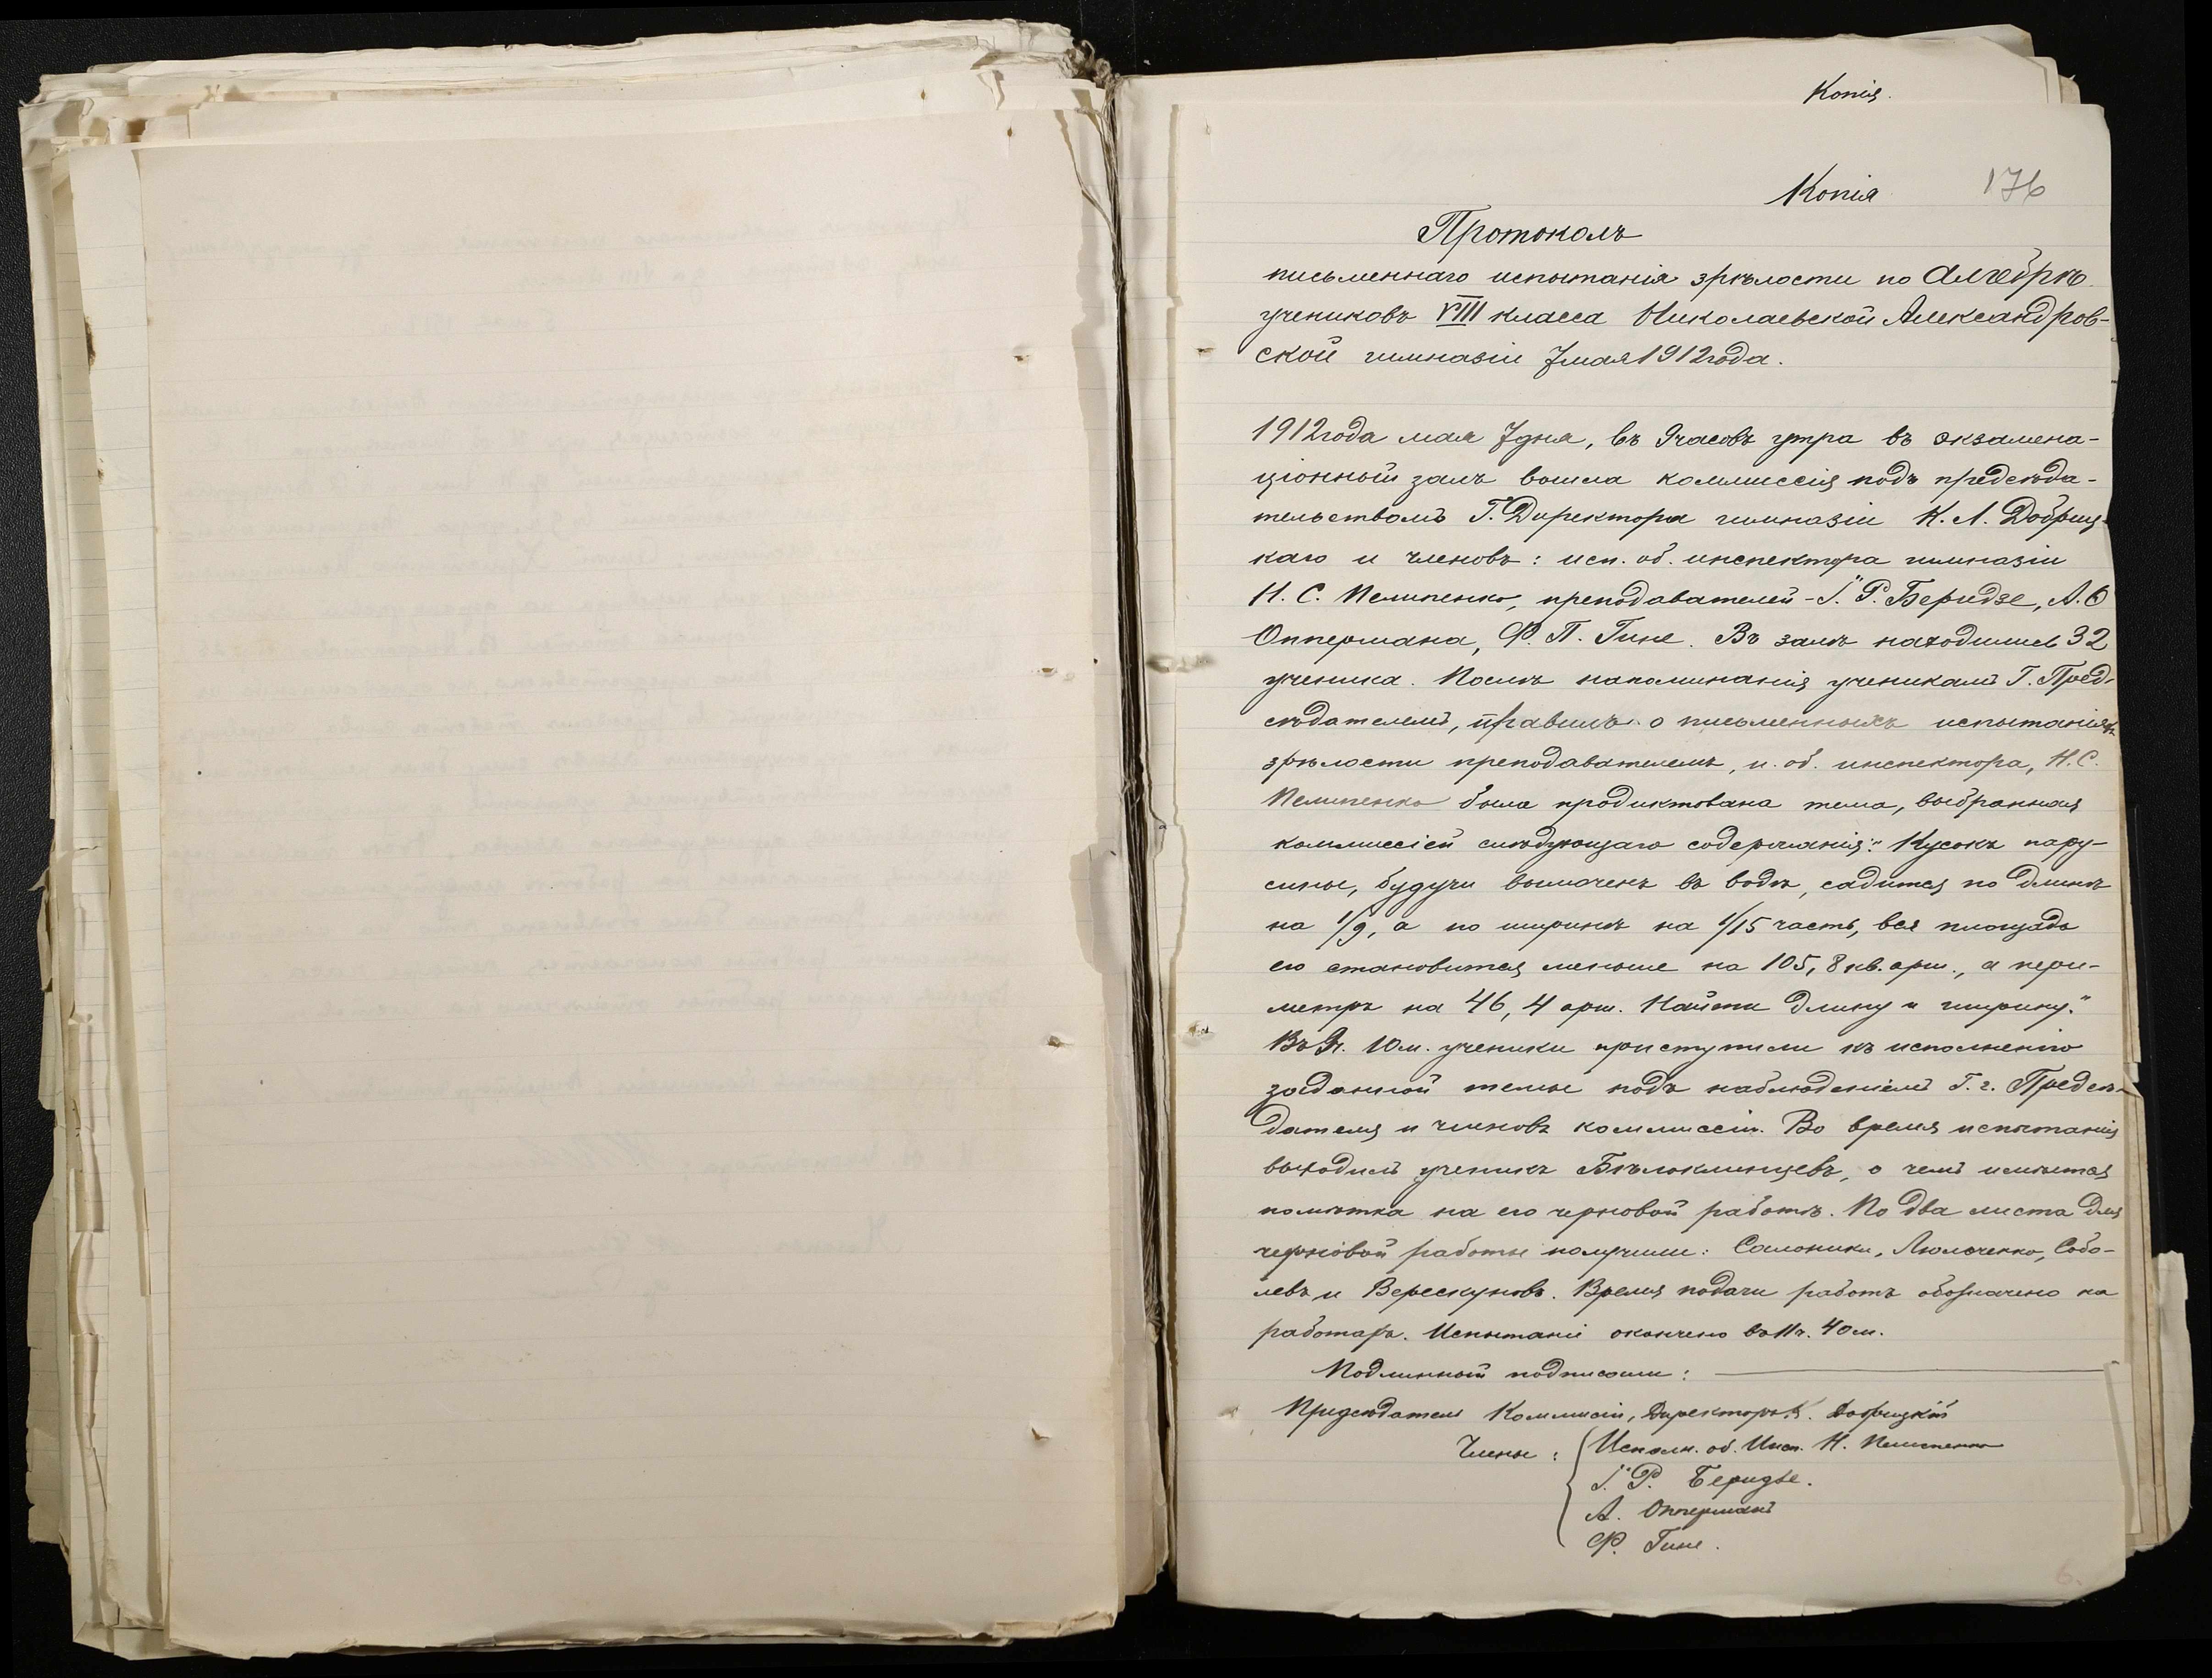 Копія.
Копія 176
Протоколъ
письменнаго испытанія зрѣлости по Алгебрѣ
учениковъ VIII класса Николаевской Александров-
ской гимназіи 7 мая 1912 года.
1912 года мая 7 дня, въ 9 часовъ утра въ экзамена-
ціонный залъ вошла коммиссія подъ предсѣда-
тельствомъ Г. Директора гимназіи К. А. Добриц-
каго и членовъ: исп. об. инспектора гимназіи
Н. С. Пелипенко, преподавателей - І. Р. Беридзе, А. О
Оппермана, Ф. П. Гине. Въ залѣ находились 32
ученика. Послѣ напоминанія ученикамъ Г. Пред-
сѣдателемъ, правилъ о письменныхъ испытаніяхъ
зрѣлости преподавателемъ, и. об. инспектора, Н. С.
Пелипенко была продиктована тема, выбранная
коммиссіей слѣдующаго содержанія: "Кусокъ пару-
сины, будучи вымоченъ въ водѣ, садится по длинѣ
на 1/9, а по ширинѣ на 1/15 часть, вся площадь
его становится меньше на 105,8 кв. арш., а пери-
метръ на 46,4 арш. Найти длину и ширину."
Въ 9 ч. 10 м. ученики приступили къ исполненію
заданной темы подъ наблюденіемъ Г. г. Предсѣ-
дателя и членовъ коммиссіи. Во время испытанія
выходилъ ученикъ Бѣлоклинцевъ, о чемъ имѣется
помѣтка на его черновой работѣ. По два листа для
черновой работы получили: Салоники, Люльченко, Собо-
левъ и Верескуновъ. Время подачи работъ обозначено на
работахъ. Испытаніе окончено въ 11 ч. 40 м.
Подлинный подписали:
Предсѣдатель Коммисіи, Директоръ К. Добрицкій
Члены: Исполн. об. Инсп. Н. Пелипенко
І. Р. Беридзе.
А. Опперманъ
Ф. Гине.